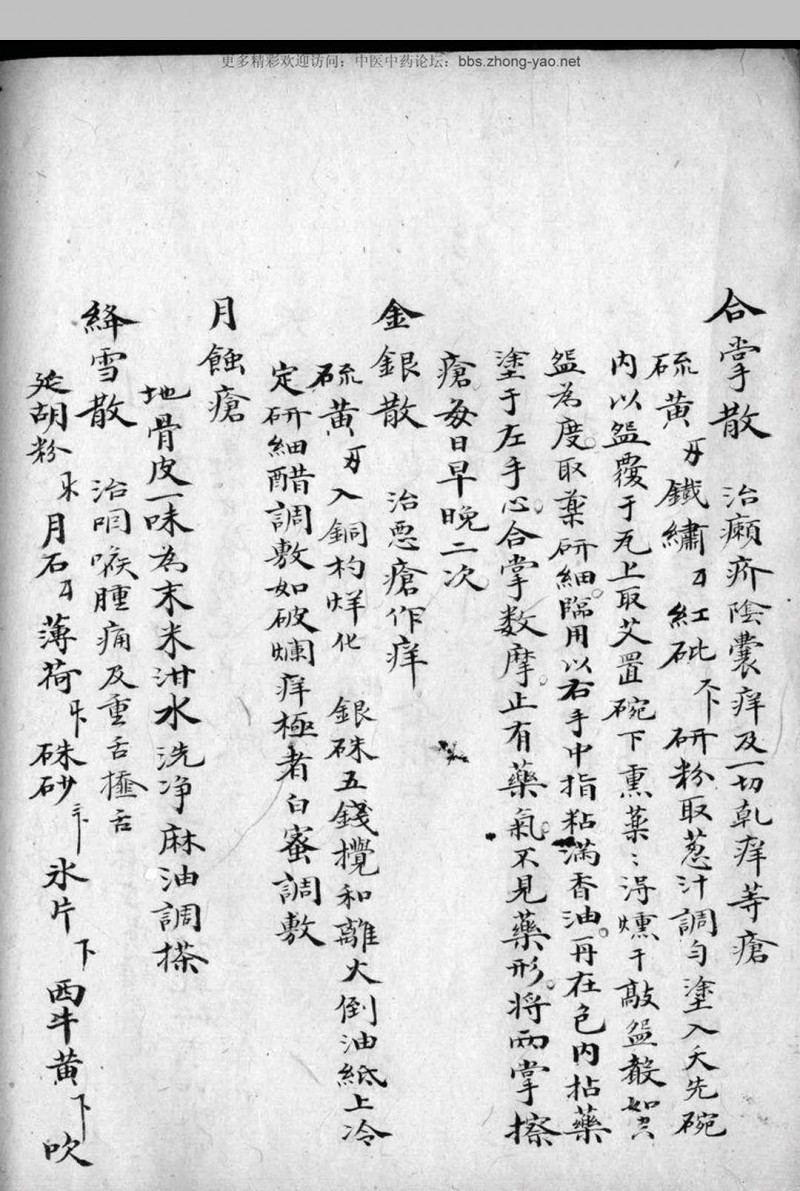 更多精彩欢迎访问：中医中药论坛：bbs.zhong-yao.net
合掌散 治癩疥陰囊痒及一切乾痒等瘡
硫黄 鐵繡 紅砒 研粉取葱汁調匀塗入夭先碗
内以盌覆于瓦上取艾置碗下熏藥〻淂燻干敲盌聲如
盌為度。取藥研細。臨用以右手中指粘滿香油。再在包内拈藥
塗于左手心。合掌数摩。止有藥氣。不見藥形。将两掌擦
瘡每日早晚二次
金銀散 治惡瘡作痒
硫黄 入銅杓烊化 銀硃五錢攪和離火倒油紙上冷
定研細醋調敷如破爛痒極者白蜜調敷
月蝕瘡
地骨皮一味為末米泔水洗净麻油調搽
絳雪散 治咽喉腫痛及重舌舌
胡粉 月石 薄荷 硃砂 氷片 西牛黄 吹